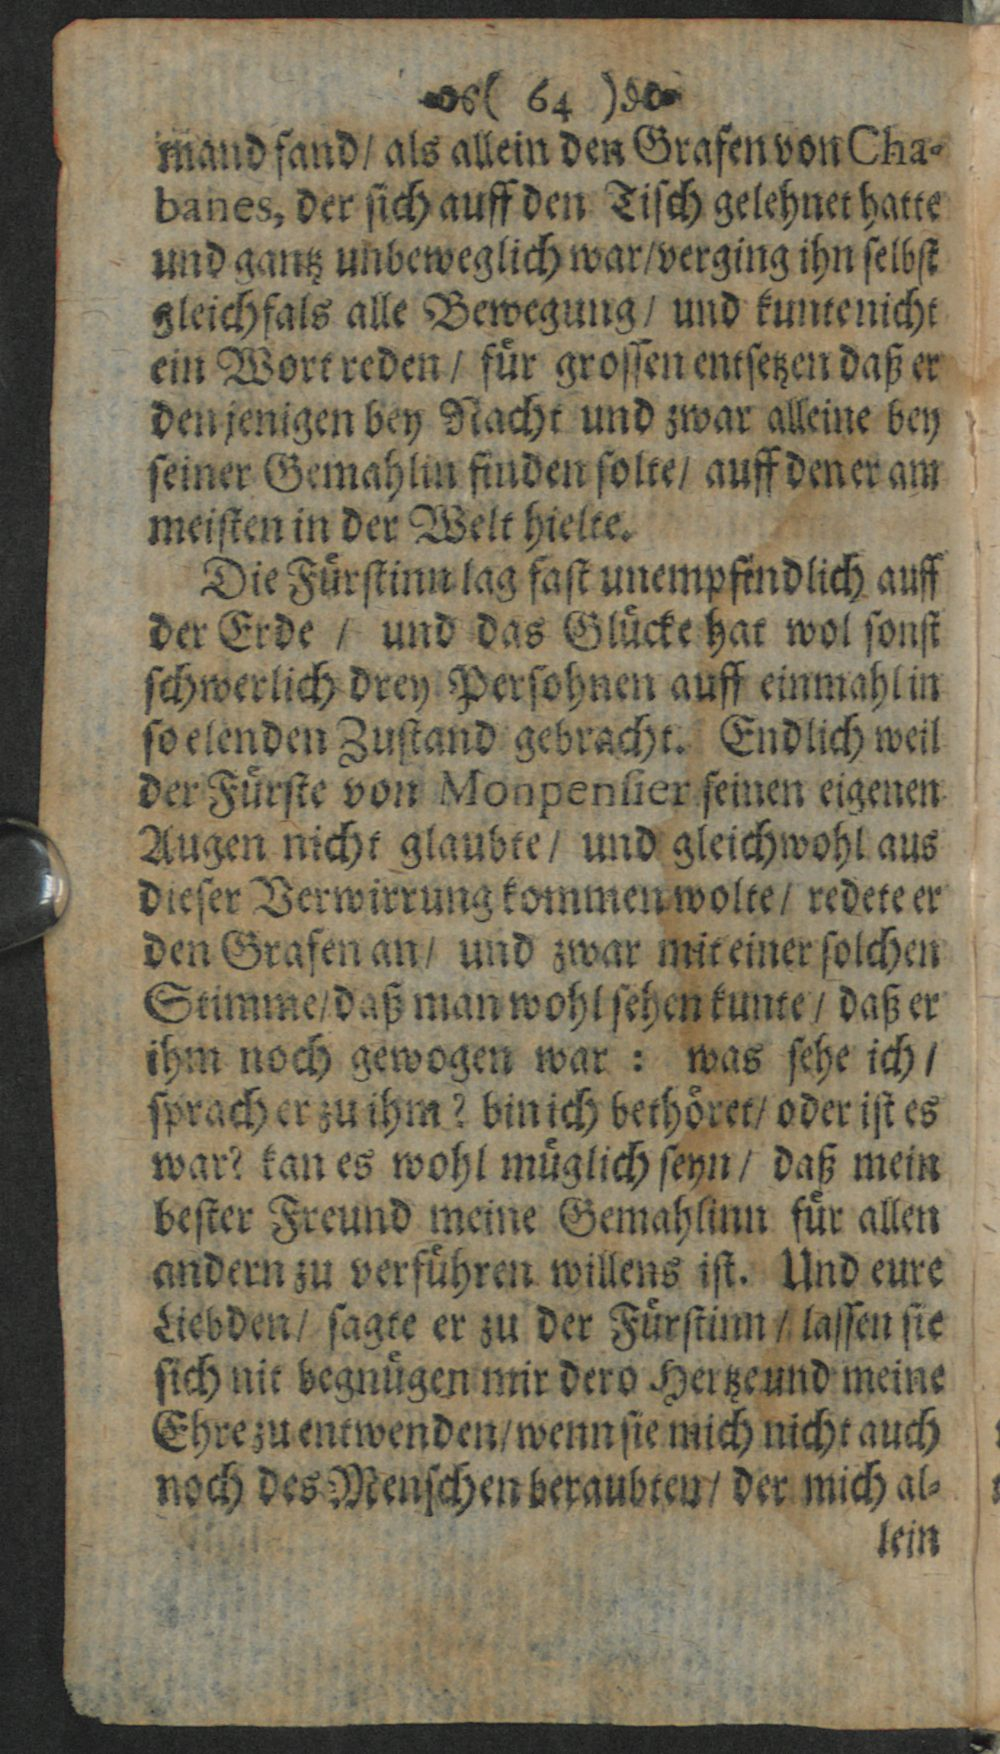 ( 64 )
mand fand/ als allein den Grafen von Cha-
banes, der sich auff den Tisch gelehnet hatte
und gantz unbeweglich war/verging ihn selbst
gleichfals alle Bewegung/ und kunte nicht
ein Wort reden/ für grossen entsetzen daß er
den jenigen bey Nacht und zwar alleine bey
seiner Gemahlin finden solte/ auff den er am
meisten in der Welt hielte.
Die Fürstinn lag fast unempfindlich auff
der Erde / und das Glücke hat wol sonst
schwerlich drey Persohnen auff einmahl in
so elenden Zustand gebracht. Endlich weil
der Fürste von Monpensier seinen eigenen
Augen nicht glaubte/ und gleichwohl aus
dieser Verwirrung kommen wolte/ redete er
den Grafen an/ und zwar mit einer solchen
Stimme/daß man wohl sehen kunte/ daß er
ihm noch gewogen war : was sehe ich/
sprach er zu ihm? bin ich bethöret/ oder ist es
war? kan es wohl müglich seyn/ daß mein
bester Freund meine Gemahlinn für allen
andern zu verführen willens ist. Und eure
Liebden/ sagte er zu der Fürstinn/ lassen sie
sich nit begnügen mir dero Hertze und meine
Ehre zu entwenden/wenn sie mich nicht auch
noch des Menschen beraubten/ der mich al-
lein